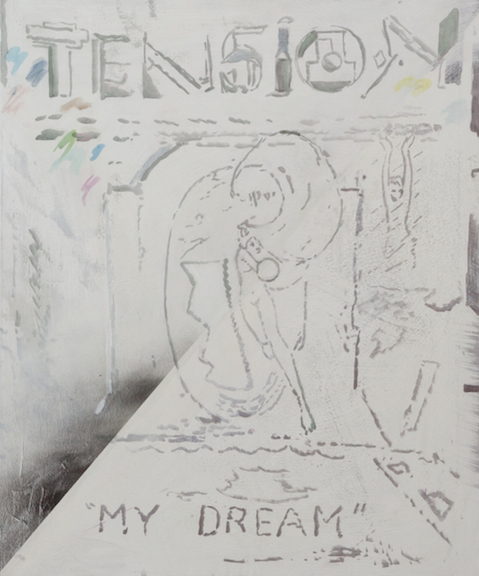 TENSION
"MY DREAM"